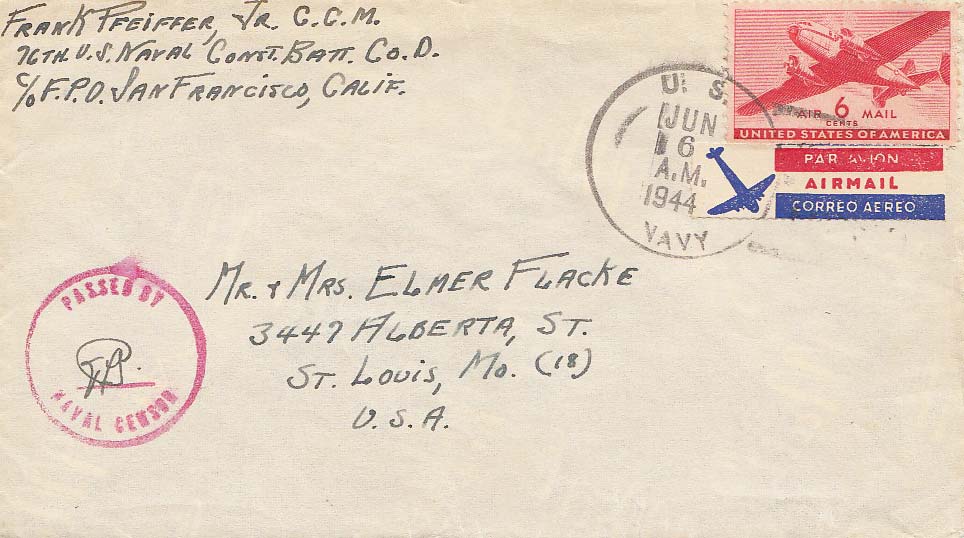 FRANK PFEIFFER, JR. C.C.M.
76TH. U.S. NAVAL CONST. BATT. CO. D.
C/O F.P.O. SAN FRANCISCO, CALIF.
AIR 6 MAIL
CENTS
UNITED STATES OF AMERICA
PAR AVION
AIRMAIL
CORREO AEREO
U. S.
JUN
6
A.M.
1944
NAVY
PASSED BY
NAVAL CENSOR
MR. & MRS. ELMER FLACKE
3447 ALBERTA, ST.
ST. LOUIS, MO. (18)
U.S.A.